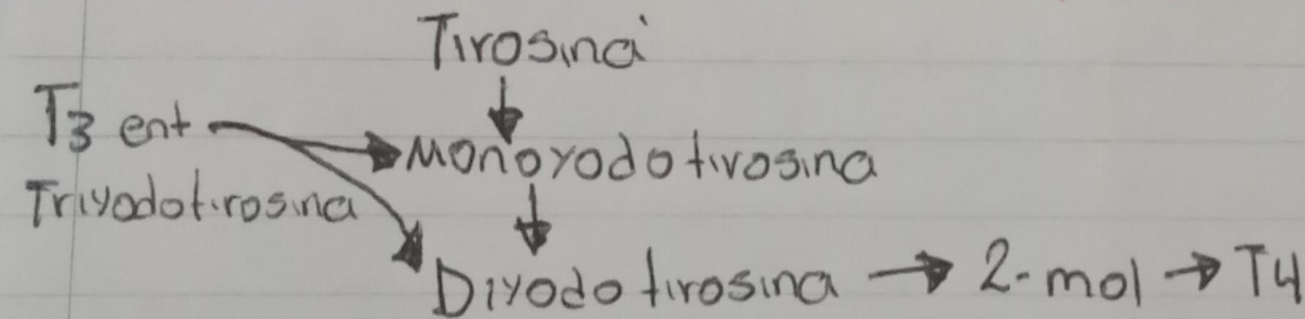 Tirosina
T3 ent → Monoyodotirosina
Triyodotirosina
Diyodotirosina → 2-mol → T4